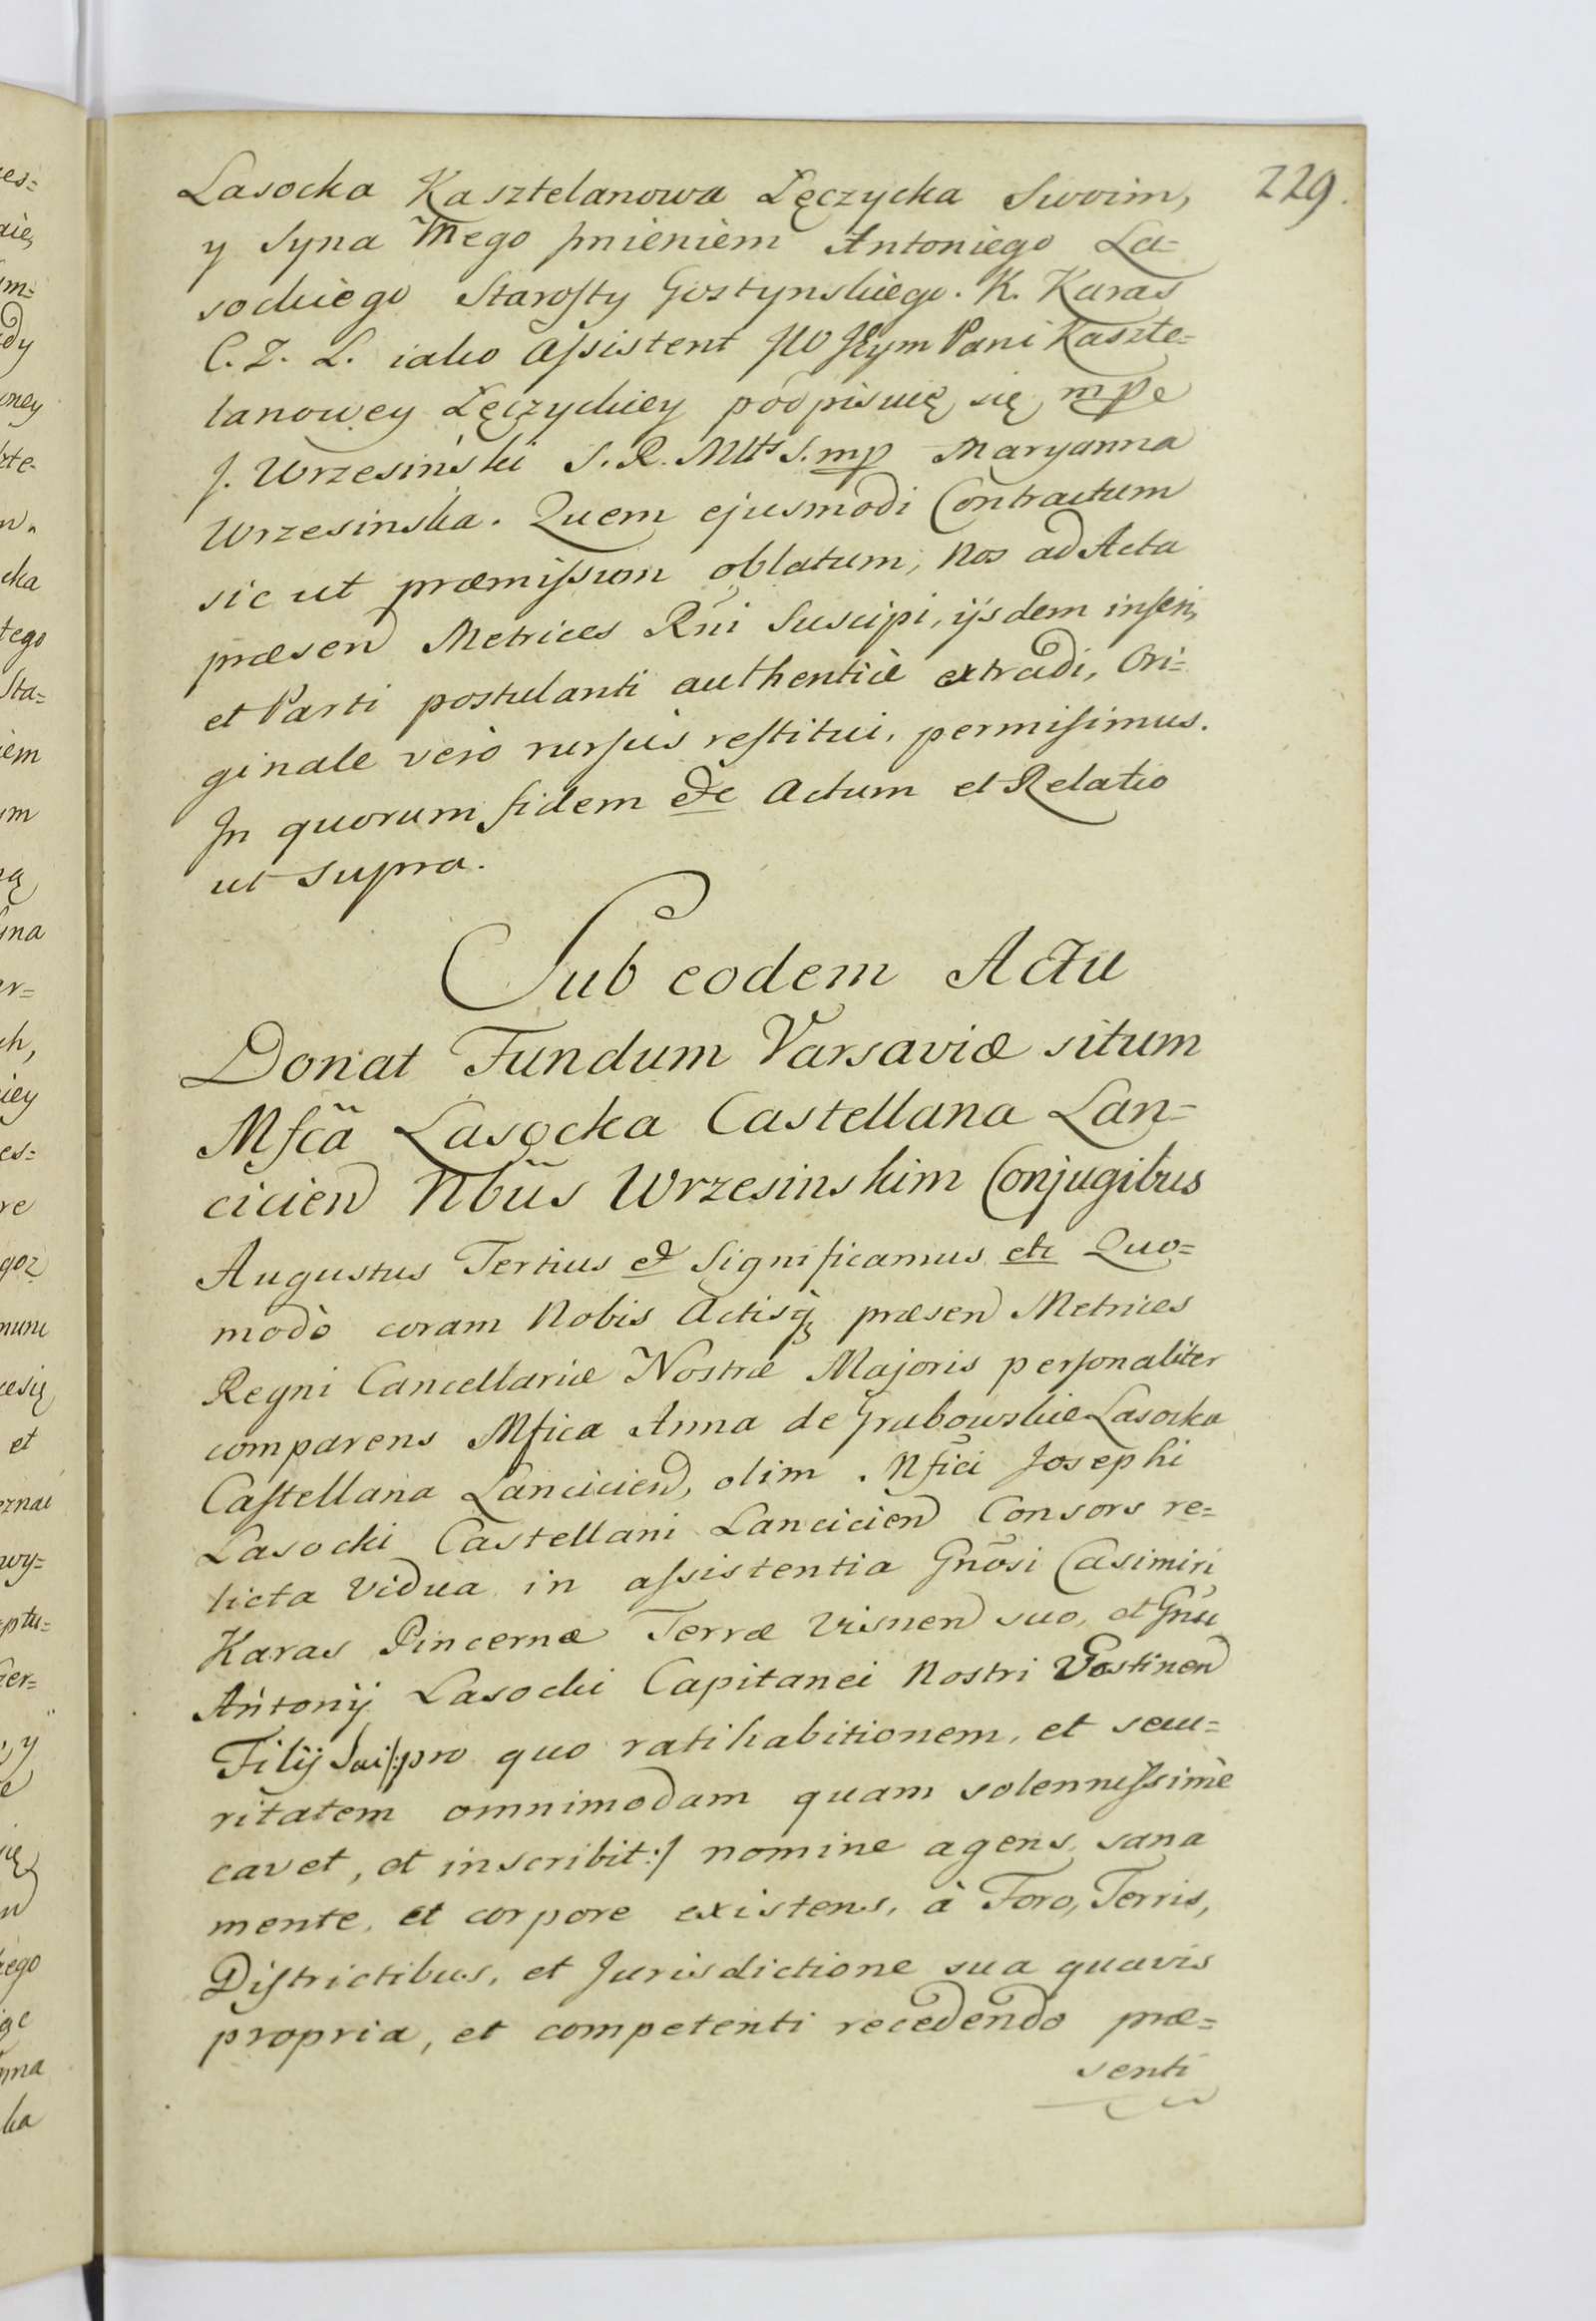 229.
Lasocka Kasztelanowa Lęczycka Swoim,
y Syna Mego Jmieniem Antoniego La=
sockiego Starosty Gostynskiego. K. Karas
C. Z. L. iako Assistent JW JEym Pani Kaszte=
lanowey Lęczyckiey podpisuię się mpe
J. Wrzesiński S. R. Mtts S. mp Maryanna
Wrzesinska. Quem ejusmodi Contractum
sic ut præmissum oblatum, Nos ad Acta
præsen Metrices Rni Suscipi, ijsdem inseri,
et Parti postulanti authenticè extradi, Ori=
ginale verò rursus restitui, permisimus.
In quorum fidem etc Actum et Relatio
ut supra.
Sub eodem Actu
Donat Fundum Varsaviæ situm
Mfca Lasocka Castellana Lan=
cicien Nbus Wrzesinskim Conjugibus
Augustus Tertius et Significamus etc Quo=
modò coram Nobis Actisq præsen Metrices
Regni Cancellariæ Nostræ Majoris personaliter
comparens Mfica Anna de Grabowskie Lasocka
Castellana Lancicien, olim Mfici Josephi
Lasocki Castellani Lancicien Consors re=
licta Vidua in assistentia Gnosi Casimiri
Karas Pincernæ Terræ Visnen suo, et Gnsi
Antonij Lasocki Capitanei Nostri Gostinen
Filij Sui /:pro quo ratihabitionem, et secu=
ritatem omnimodam quam solennissimè
cavet, et inscribit:/ nomine agens, sana
mente, et corpore existens, à Foro, Terris,
Districtibus, et Jurisdictione sua quavis
propria, et competenti recedendo præ=
senti